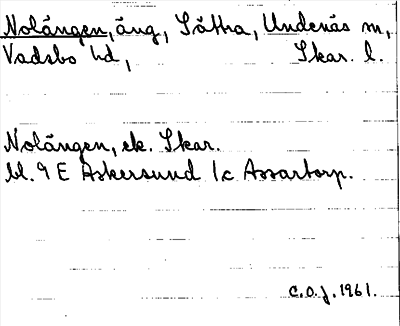 Nolängen, äng, Sätra, Undenäs sn,
Vadsbo hd, Skar. l.
Nolängen, ek. Skar.
bl. 9 E Askersund 1c Assartorp.
C.O.J. 1961.